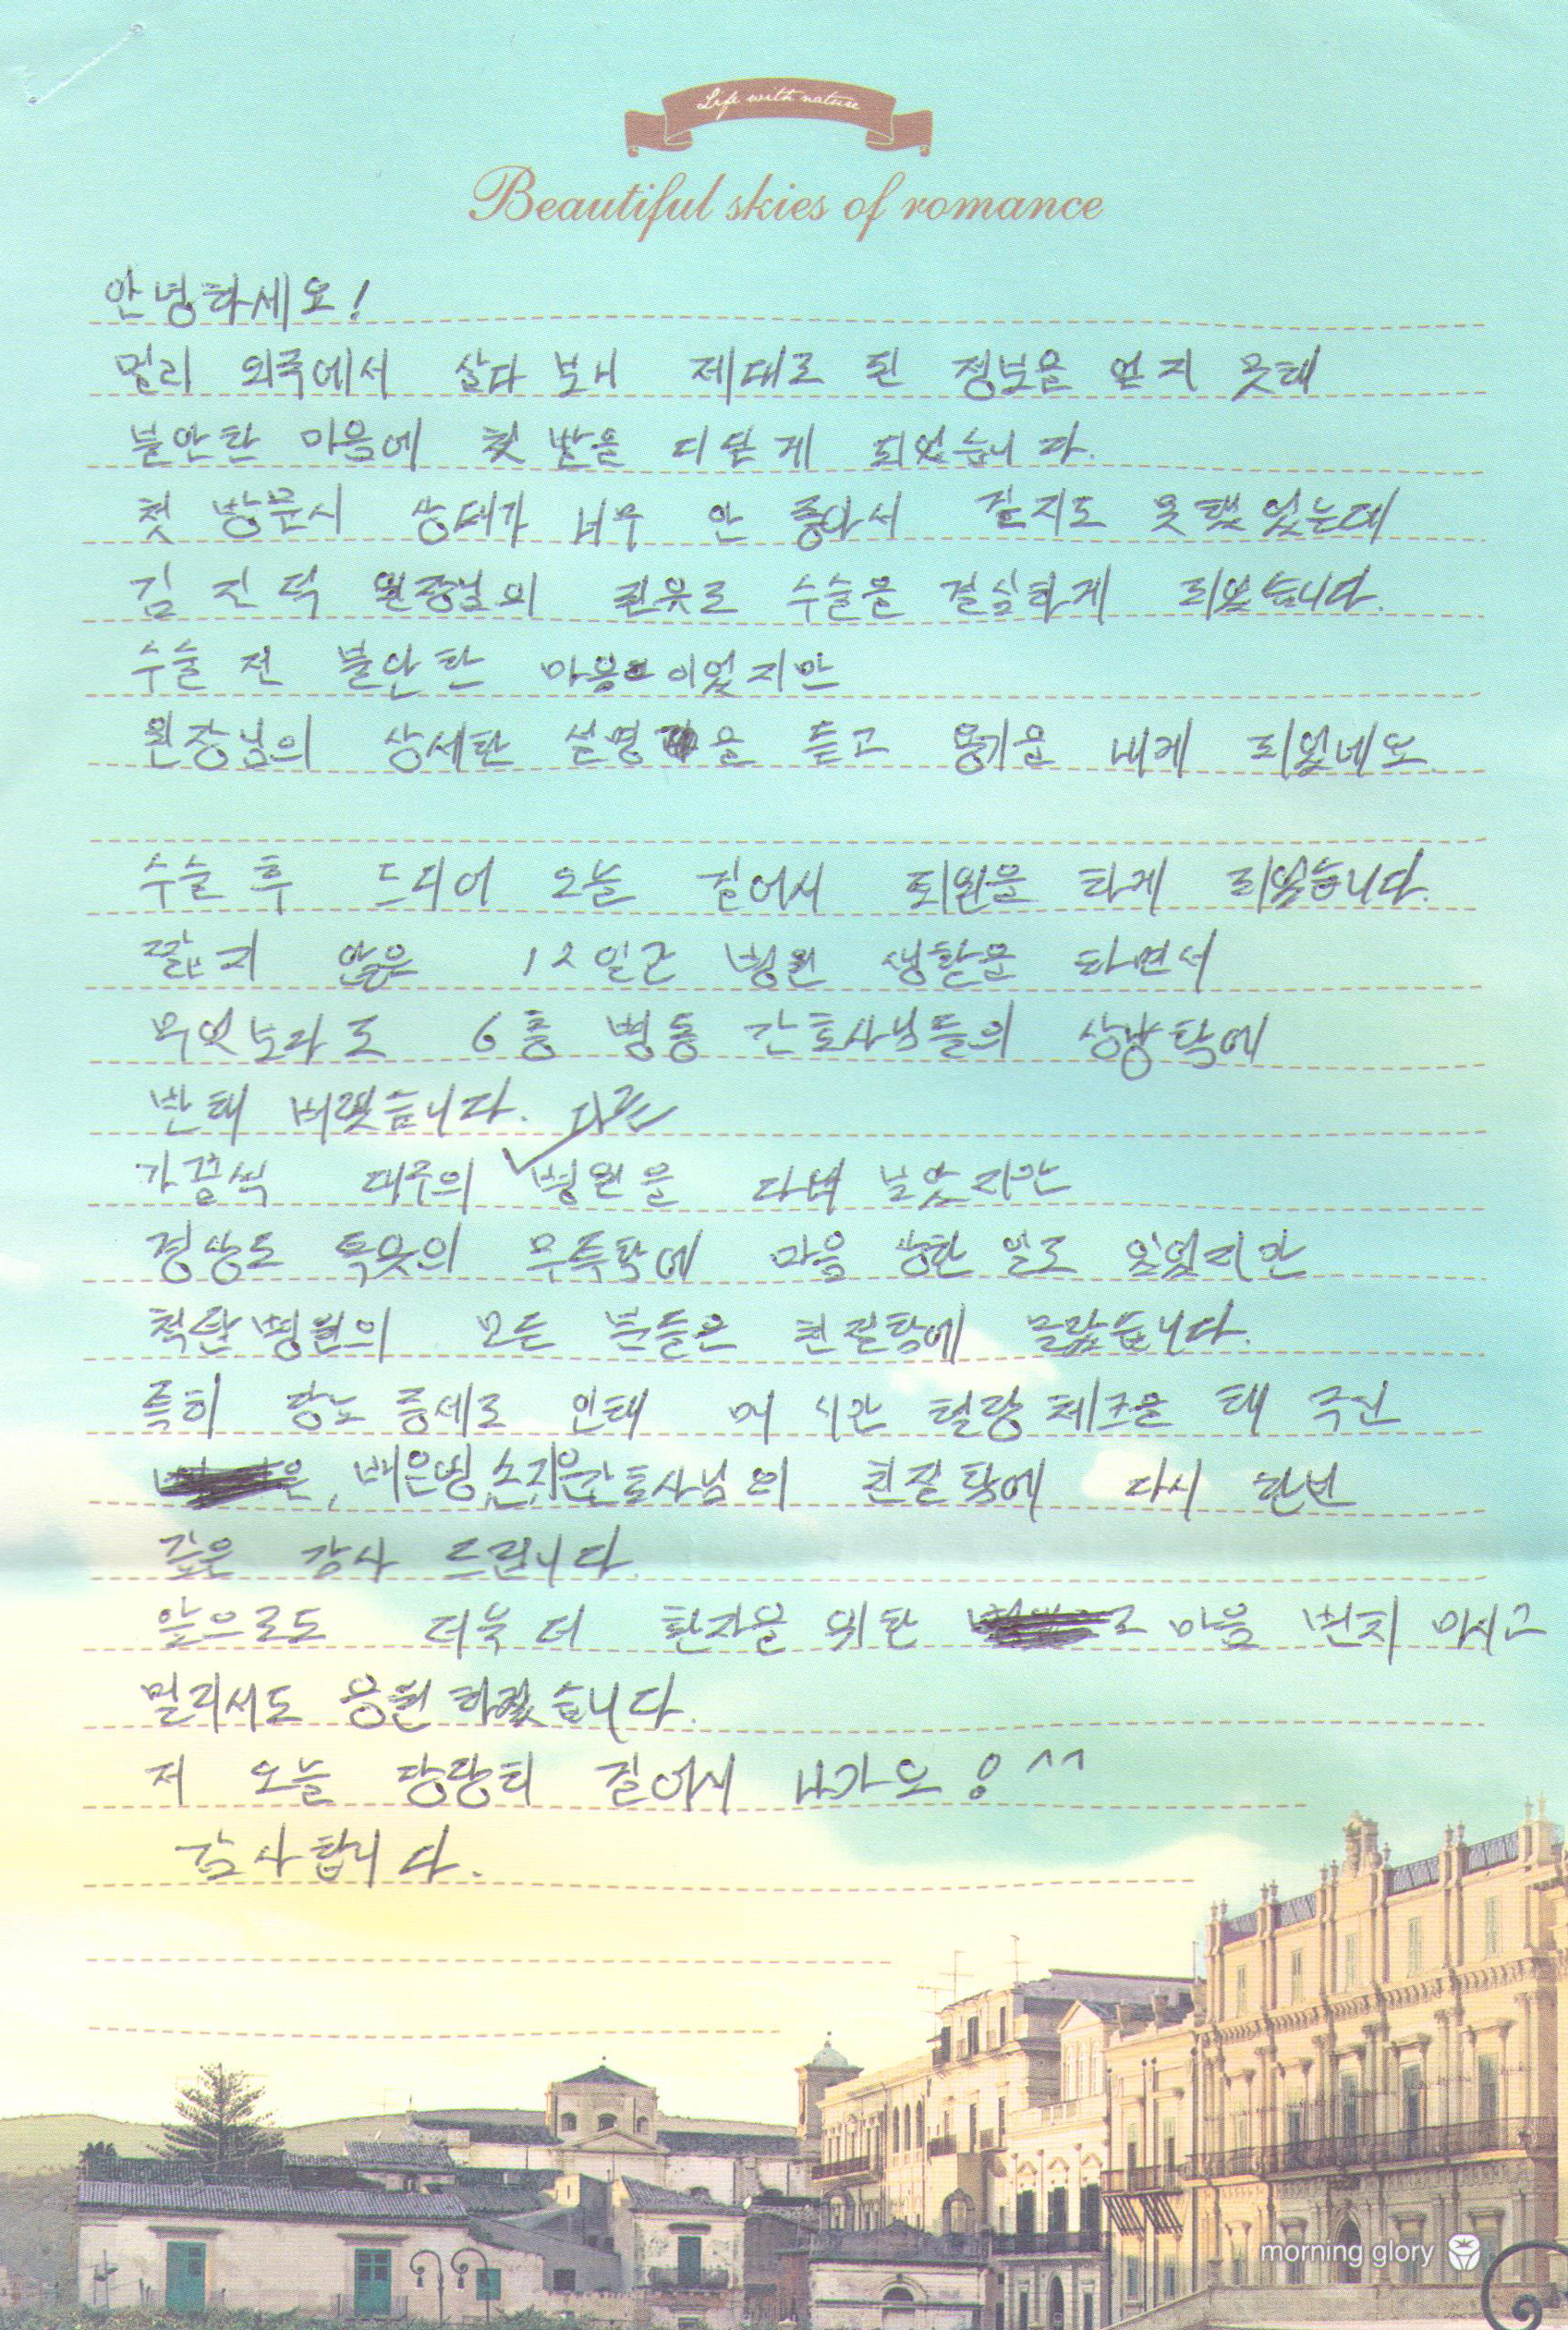 Life with nature
Beautiful skies of romance
안녕하세요!
멀리 외국에서 살다 보니 제대로 된 정보을 얻지 못해
불안한 마음에 첫 발을 디딛게 되었습니다.
첫 방문시 상태가 너무 안 좋아서 걷지도 못했었는데
김진덕 원장님의 권유로 수술을 결심하게 되었습니다.
수술 전 불안한 마음이었지만
원장님의 상세한 설명을 듣고 용기을 내게 되었네요.
수술 후 드디어 오늘 걸어서 퇴원을 하게 되었습니다.
짧지 않은 12일간 병원 생활을 하면서
무엇보라도 6층 병동 간호사님들의 상냥함에
반해 버렸습니다.
가끔씩 대구의 다른 병원을 다녀 보았지만
경상도 특윳의 무뚝함에 마음 상한 일도 있었지만
척탑병원의 모든 분들은 친절함에 놀랐습니다.
특히 당뇨 증세로 인해 매 시간 혈당 체크을 해 주신
배은영, 손지은간호사님의 친절함에 다시 한번
깊은 감사 드립니다.
앞으로도 더욱 더 환자을 위한 마음 변치 마시고
멀리서도 응원 하겠습니다.
저 오늘 당당히 걸어서 나가요! ^^
감사합니다.
morning glory